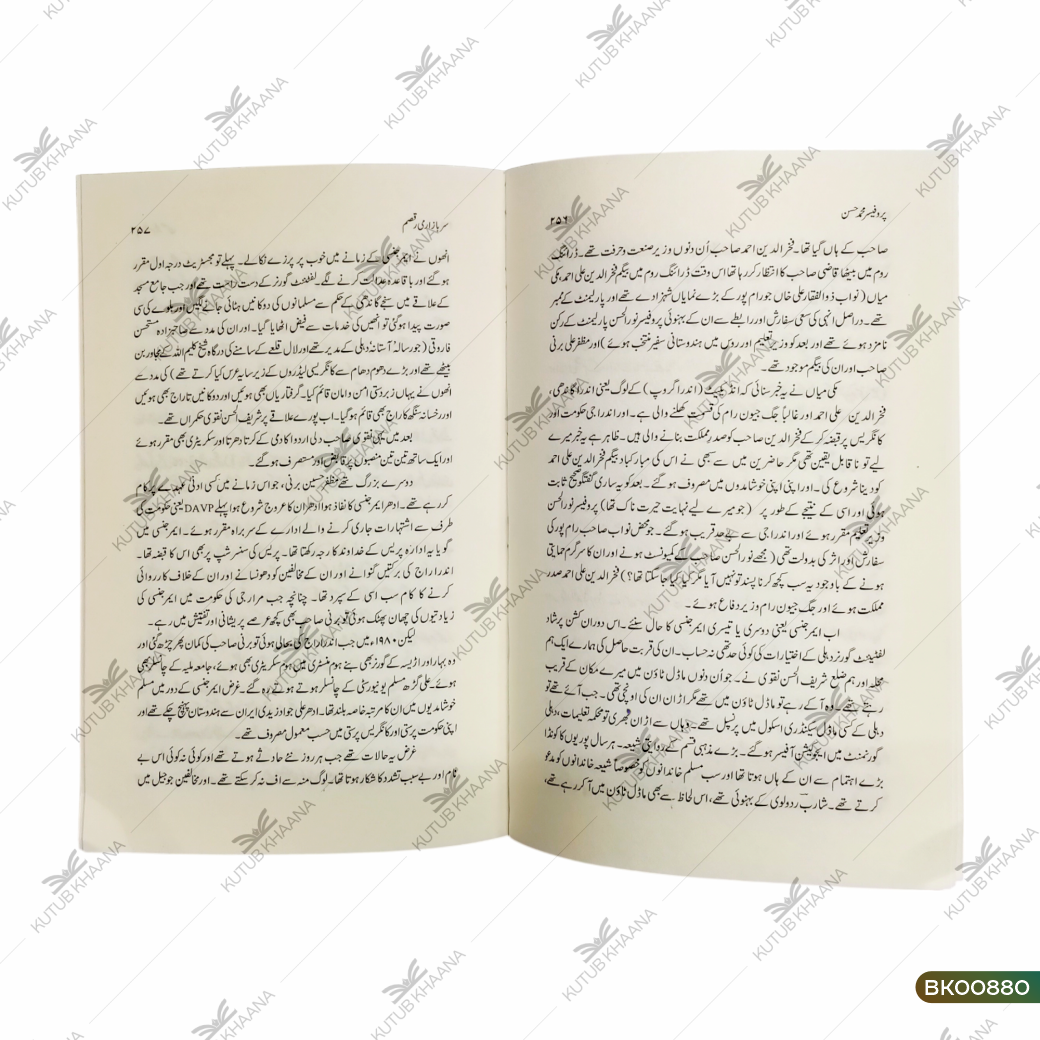 پروفیسر محمد حسن ۲۵۶
صاحب کے ہاں گیا تھا۔ فخر الدین احمد صاحب اُن دنوں وزیر صنعت و حرفت تھے۔ ڈرائنگ
روم میں بیٹھا قاضی صاحب کا انتظار کر رہا تھا اس وقت ڈرائنگ روم میں بیگم فخر الدین علی احمد، مکی
میاں (نواب ذوالفقار علی خاں جو رام پور کے بڑے نمایاں شہزادے تھے اور پارلیمنٹ کے ممبر
تھے۔ دراصل انہی کی سعی سفارش اور رابطے سے ان کے بہنوئی پروفیسر نور الحسن پارلیمنٹ کے رکن
نامزد ہوئے تھے اور بعد کو وزیر تعلیم اور روس میں ہندوستانی سفیر منتخب ہوئے) اور مظفر علی برنی
صاحب اور ان کی بیگم موجود تھے۔
مکی میاں نے یہ خبر سنائی کہ انڈیکیٹ (اندرا گروپ) کے لوگ یعنی اندرا گاندھی،
فخر الدین علی احمد اور غالباً جگ جیون رام کی قسمت کھلنے والی ہے۔ اور اندرا جی حکومت اور
کانگریس پر قبضہ کر کے فخر الدین صاحب کو صدر مملکت بنانے والی ہیں۔ ظاہر ہے یہ خبر میرے
لیے تو ناقابل یقین تھی مگر حاضرین میں سے سبھی نے اس کی مبارکباد بیگم فخر الدین علی احمد
کو دینا شروع کی۔ اور اپنی اپنی خوشامدوں میں مصروف ہو گئے۔ بعد کو یہ ساری گفتگو صحیح ثابت
ہوئی اور اسی کے نتیجے کے طور پر (جو میرے لیے نہایت حیرت ناک تھا) پروفیسر نور الحسن
وزیر تعلیم مقرر ہوئے اور اندرا جی سے بے حد قریب ہو گئے۔ جو محض نواب صاحب رام پور کی
سفارش اور اثر کی بدولت تھی (مجھے نور الحسن صاحب کے کمیونسٹ ہونے اور ان کا سرگرم حمایتی
ہونے کے باوجود یہ سب کچھ کرنا پسند تو نہیں آیا مگر کیا کیا جا سکتا تھا؟) فخر الدین علی احمد صدر
مملکت ہوئے اور جگ جیون رام وزیر دفاع ہوئے۔
اب ایمرجنسی یعنی دوسری یا تیسری ایمرجنسی کا حال سنئے۔ اس دوران کشن پرشاد
لفٹیننٹ گورنر دہلی کے اختیارات کی کوئی حد تھی نہ حساب۔ ان کی قربت حاصل کی ہمارے ایک ہم
محلہ اور ہم ضلع شریف الحسن نقوی نے۔ جو اُن دنوں ماڈل ٹاؤن میں میرے مکان کے قریب
رہتے تھے۔ وہ آ کے رہے تو ماڈل ٹاؤن میں تھے مگر اڑان ان کی اونچی تھی۔ جب آئے تھے تو
دہلی کے کسی ماڈل سیکنڈری اسکول میں پرنسپل تھے۔ وہاں سے اڑان بھری تو محکمہ تعلیمات، دہلی
گورنمنٹ میں ایجوکیشن آفیسر ہو گئے۔ بڑے مذہبی قسم کے روایتی شیعہ۔ ہر سال پوریوں کا کونڈا
بڑے اہتمام سے ان کے ہاں ہوتا تھا اور سب مسلم خاندانوں کو خصوصاً شیعہ خاندانوں کو مدعو
کرتے تھے۔ شارب ردولوی کے بہنوئی تھے، اس لحاظ سے بھی ماڈل ٹاؤن میں آ کر رہے تھے،
سر بازار می رقصم ۲۵۷
انھوں نے ایمرجنسی کے زمانے میں خوب پر پرزے نکالے۔ پہلے تو مجسٹریٹ درجہ اول مقرر
ہو گئے اور باقاعدہ عدالت کرنے لگے۔ لفٹننٹ گورنر کے دست راست تھے اور جب جامع مسجد
کے علاقے میں سنجے گاندھی کے حکم سے مسلمانوں کی دوکانیں ہٹائی جانے لگیں اور بلوے کی سی
صورت پیدا ہو گئی تو انھیں کی خدمات سے فیض اٹھایا گیا۔ اور ان کی مدد سے صاحبزادہ مستحسن
فاروقی (جو رسالہ آستانہ دہلی کے مدیر تھے اور لال قلعے کے سامنے کی درگاہ شیخ کلیم اللہ کے مجاور بن
بیٹھے تھے اور بڑے دھوم دھام سے کانگریسی لیڈروں کے زیر سایہ عرس کیا کرتے تھے) کی مدد سے
انھوں نے یہاں زبردستی امن و امان قائم کیا۔ گرفتاریاں بھی ہوئیں اور دوکانیں تاراج بھی ہوئیں
اور رخسانہ سنگھ کا راج بھی قائم ہو گیا۔ اب پورے علاقے پر شریف الحسن نقوی حکمراں تھے۔
بعد میں یہی نقوی صاحب دلی اردو اکادمی کے کرتا دھرتا اور سکریٹری بھی مقرر ہوئے
اور ایک ساتھ تین تین منصبوں پر قابض اور متصرف ہو گئے۔
دوسرے بزرگ تھے مظفر حسین برنی، جو اس زمانے میں کسی ادنیٰ عہدے پر کام
کر رہے تھے۔ ادھر ایمرجنسی کا نفاذ ہوا ادھر ان کا عروج شروع ہوا پہلے DAVP یعنی حکومت کی
طرف سے اشتہارات جاری کرنے والے ادارے کے سربراہ مقرر ہوئے۔ ایمرجنسی میں
گویا یہ ادارہ پریس کے خداوند کا درجہ رکھتا تھا۔ پریس کی سنسر شپ پر بھی اس کا قبضہ تھا۔
اندرا راج کی برکتیں گنوانے اور ان کے مخالفین کو دھونسانے اور ان کے خلاف کارروائی
کرنے کا کام سب اسی کے سپرد تھا۔ چنانچہ جب مرارجی کی حکومت میں ایمرجنسی کی
زیادتیوں کی چھان پھٹک ہوئی تو برنی صاحب بھی کچھ عرصے پریشانی اور تفتیش میں رہے۔
لیکن ۱۹۸۰ء میں جب اندرا راج کی بحالی ہوئی تو برنی صاحب کی کمان پھر چڑھ گئی اور
وہ بہار اور اڑیسہ کے گورنر بھی بنے ہوم منسٹری میں ہوم سکریٹری بھی ہوئے، جامعہ ملیہ کے چانسلر بھی
ہوئے۔ علی گڑھ مسلم یونیورسٹی کے چانسلر ہوتے ہوتے رہ گئے۔ غرض ایمرجنسی کے دور میں مسلم
خوشامدیوں میں ان کا مرتبہ خاصہ بلند تھا۔ ادھر علی جواد زیدی ایران سے ہندوستان پہنچ چکے تھے اور
اپنی حکومت پرستی اور کانگریس پرستی میں حسب معمول مصروف تھے۔
غرض یہ حالات تھے جب ہر روز نئے حادثے ہوتے تھے اور کوئی نہ کوئی اس بے
نام اور بے سبب تشدد کا شکار ہوتا تھا۔ لوگ منہ سے اف نہ کر سکتے تھے۔ اور مخالفین جو جیل میں
KUTUB KHAANA
BK00880